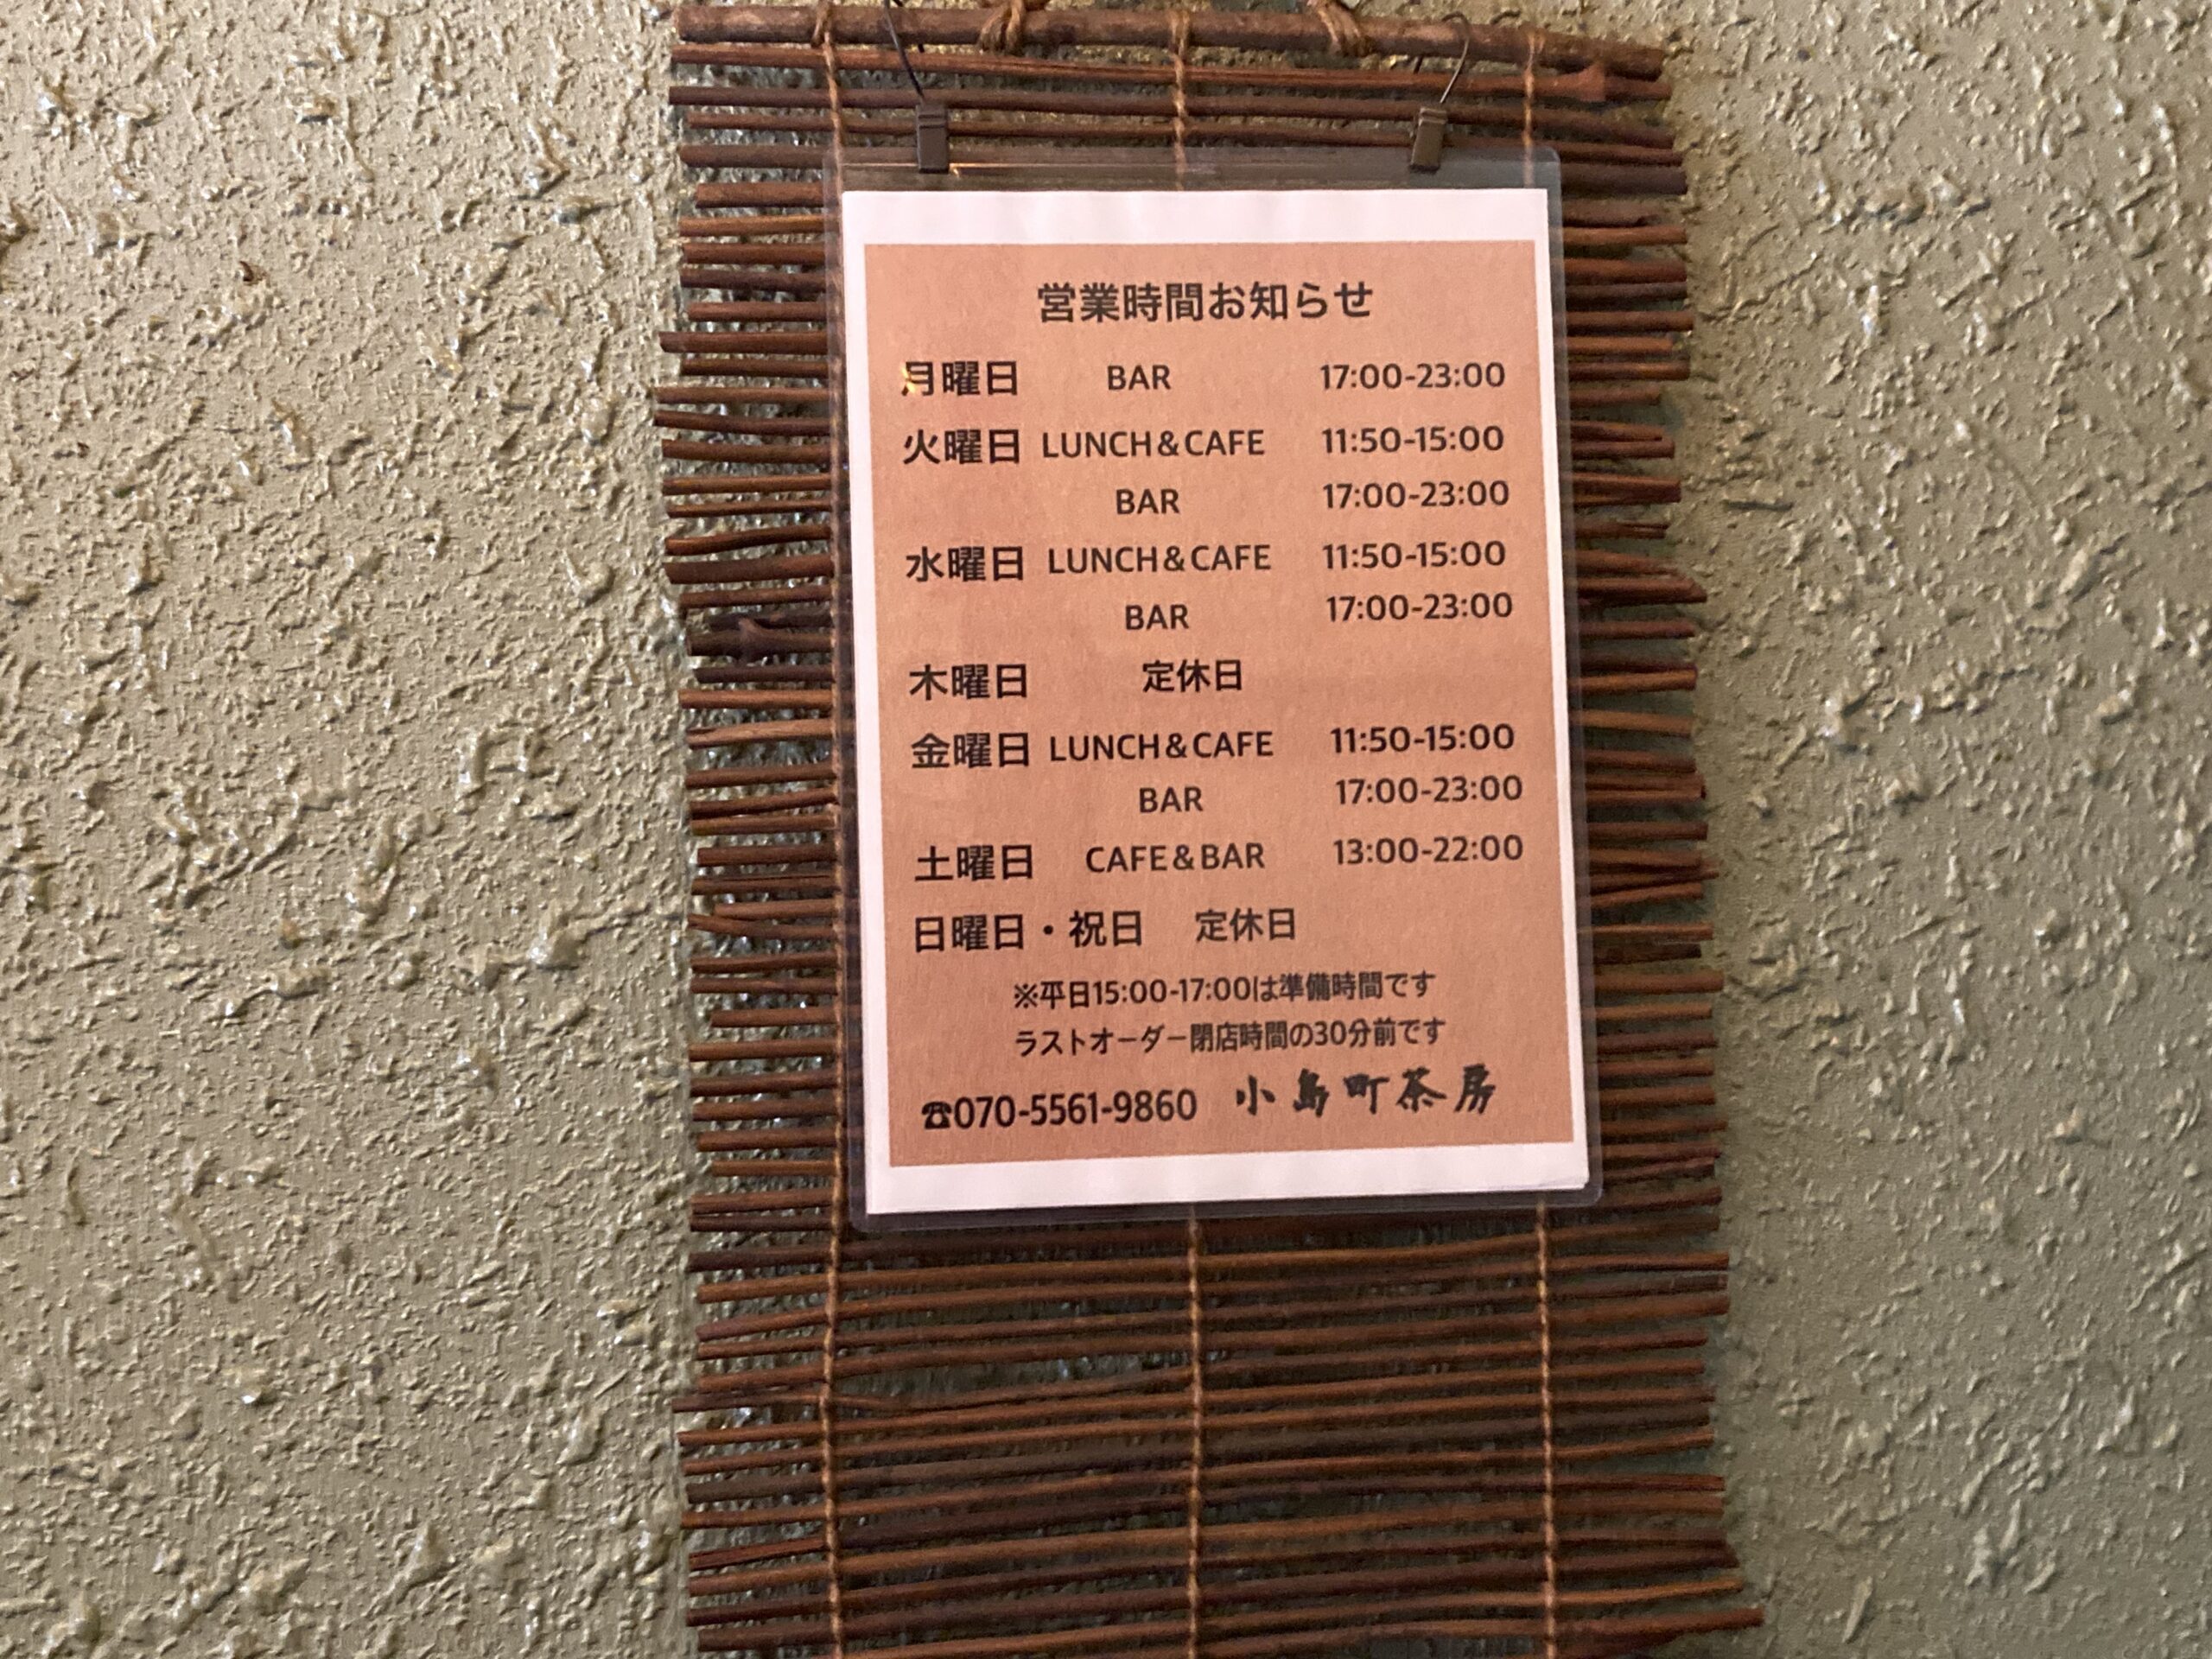 営業時間お知らせ
月曜日 BAR 17:00-23:00
火曜日 LUNCH&CAFE 11:50-15:00
BAR 17:00-23:00
水曜日 LUNCH&CAFE 11:50-15:00
BAR 17:00-23:00
木曜日 定休日
金曜日 LUNCH&CAFE 11:50-15:00
BAR 17:00-23:00
土曜日 CAFE&BAR 13:00-22:00
日曜日・祝日 定休日
※平日15:00-17:00は準備時間です
ラストオーダー閉店時間の30分前です
☎070-5561-9860 小島町茶房